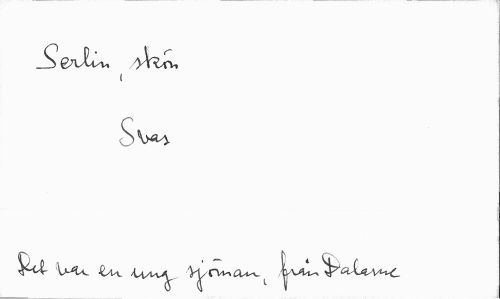 Serlin, skön
Svas
Det var en ung sjöman, från Dalarne